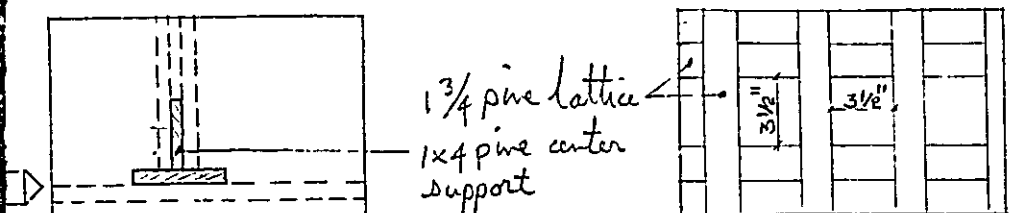 1 3/4 pine lattice
1x4 pine center
support
3 1/2"
3 1/2"